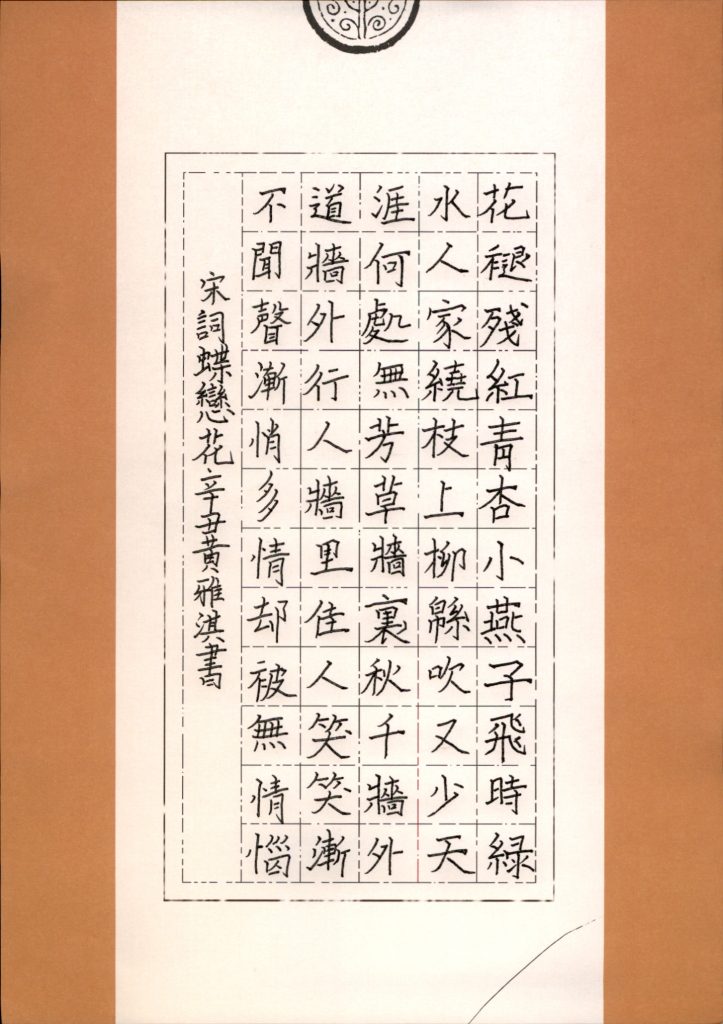 花褪殘紅青杏小燕子飛時緑
水人家繞枝上柳緜吹又少天
涯何處無芳草牆裏秋千牆外
道牆外行人牆里佳人笑笑漸
不聞聲漸悄多情却被無情惱
宋詞蝶戀花辛丑黃雅淇書